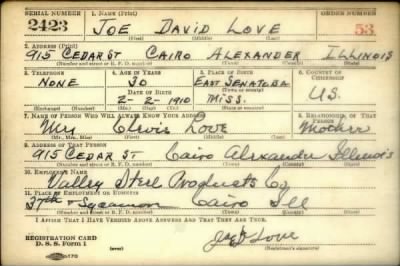 SERIAL NUMBER 1. NAME (Print) ORDER NUMBER
2423 JOE DAVID LOVE 53
(First) (Middle) (Last)
2. ADDRESS (Print)
915 CEDAR ST CAIRO ALEXANDER ILLINOIS
(Number and street or R. F. D. number) (Town) (County) (State)
3. TELEPHONE 4. AGE IN YEARS 5. PLACE OF BIRTH 6. COUNTRY OF CITIZENSHIP
NONE 30 EAST SENATOBA
(Town or county)
DATE OF BIRTH
2-2-1910 MISS. U.S.
(Exchange) (Number) (Mo.) (Day) (Yr.) (State or country)
7. NAME OF PERSON WHO WILL ALWAYS KNOW YOUR ADDRESS 8. RELATIONSHIP OF THAT PERSON
Mrs Love Mother
(Mr., Mrs., Miss) (First) (Middle) (Last)
9. ADDRESS OF THAT PERSON
915 CEDAR ST Cairo Alexander Illinois
(Number and street or R. F. D. number) (Town) (County) (State)
10. EMPLOYER'S NAME
Valley Steel Products Co
11. PLACE OF EMPLOYMENT OR BUSINESS
37th + Sycamore Cairo Ill
(Number and street or R. F. D. number) (Town) (County) (State)
I AFFIRM THAT I HAVE VERIFIED ABOVE ANSWERS AND THAT THEY ARE TRUE.
REGISTRATION CARD
D. S. S. Form 1 Love
(Registrant's signature)